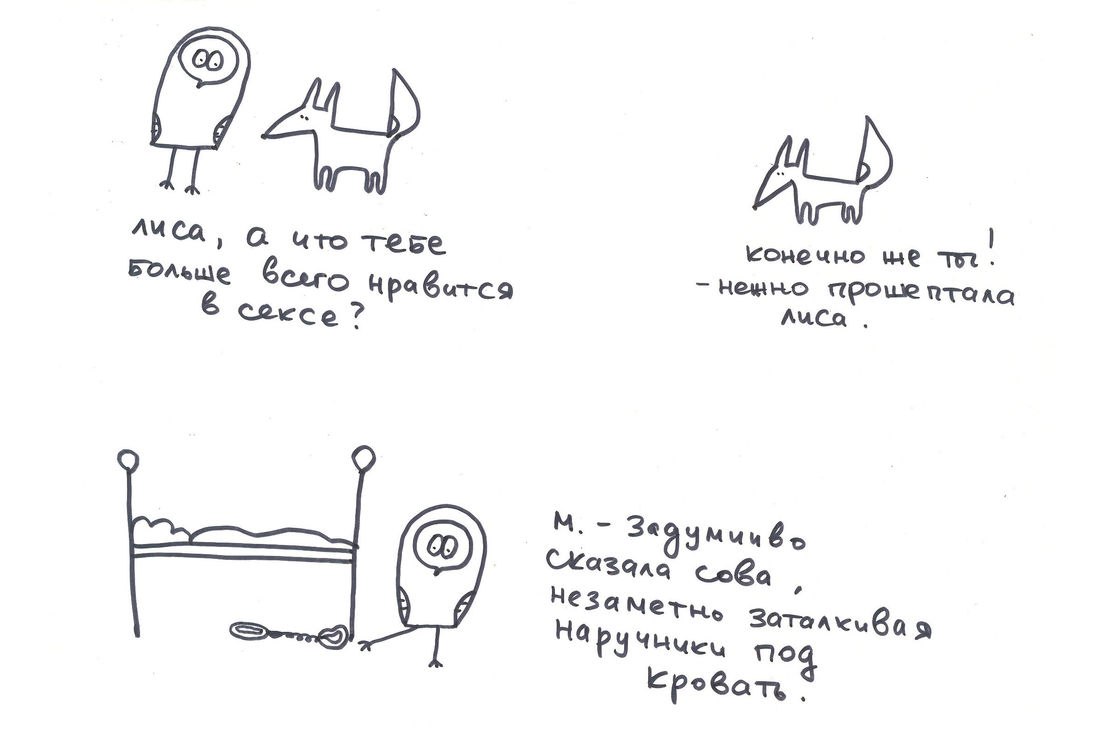 лиса, а что тебе
больше всего нравится
в сексе?
конечно же ты!
- нежно прошептала
лиса.
М. - Задумчиво
сказала сова,
незаметно заталкивая
наручники под
кровать.